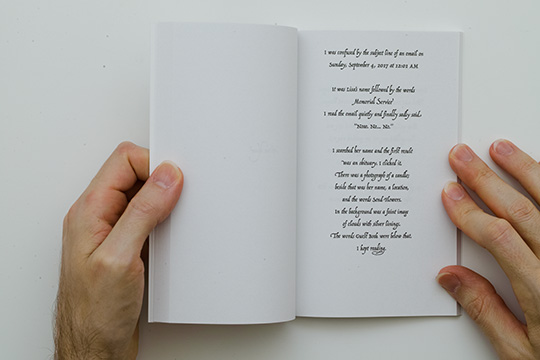 I was confused by the subject line of an email on
Sunday, September 4, 2017 at 12:02 AM
It was Lisa's name followed by the words
"Memorial Service"
I read the email quietly and finally sadly said,
"Nooo. No... No."
I searched her name and the first result
was an obituary. I clicked it.
There was a photograph of a candle;
beside that was her name, a location,
and the words Send Flowers.
In the background was a faint image
of clouds with silver linings.
The words Guest Book were below that.
I kept reading.